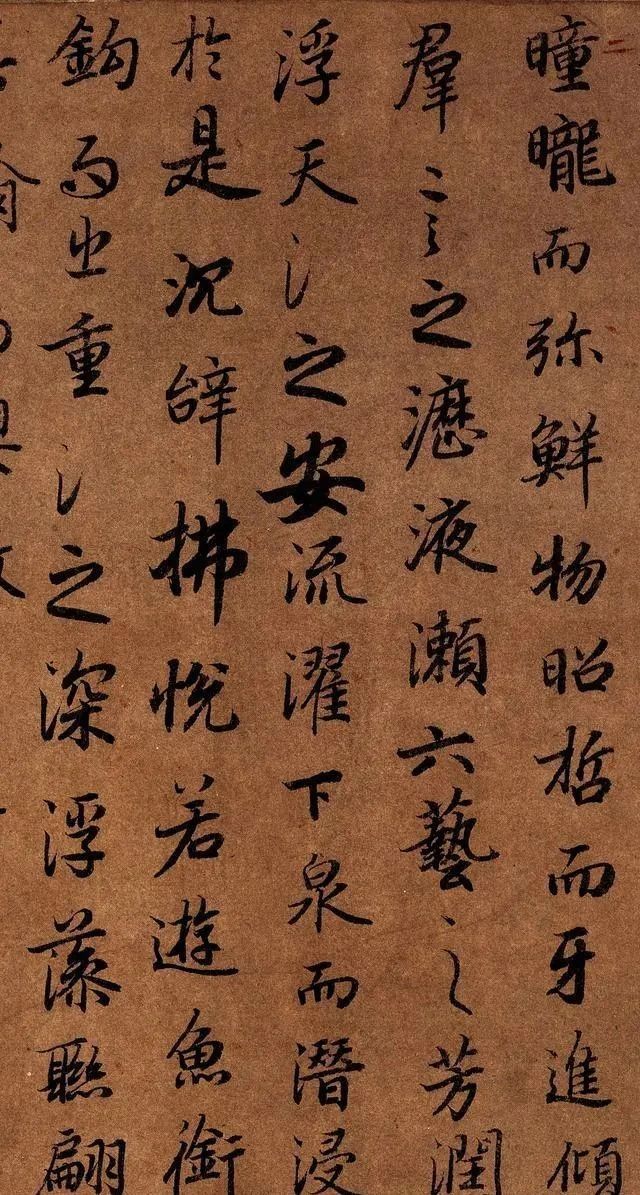 曈曨而弥鮮物昭哲而牙進傾
羣言之瀝液漱六藝之芳潤
浮天淵之安流濯下泉而潛浸
於是沉辭怫悅若遊魚銜
鈎而出重淵之深浮藻聯翩